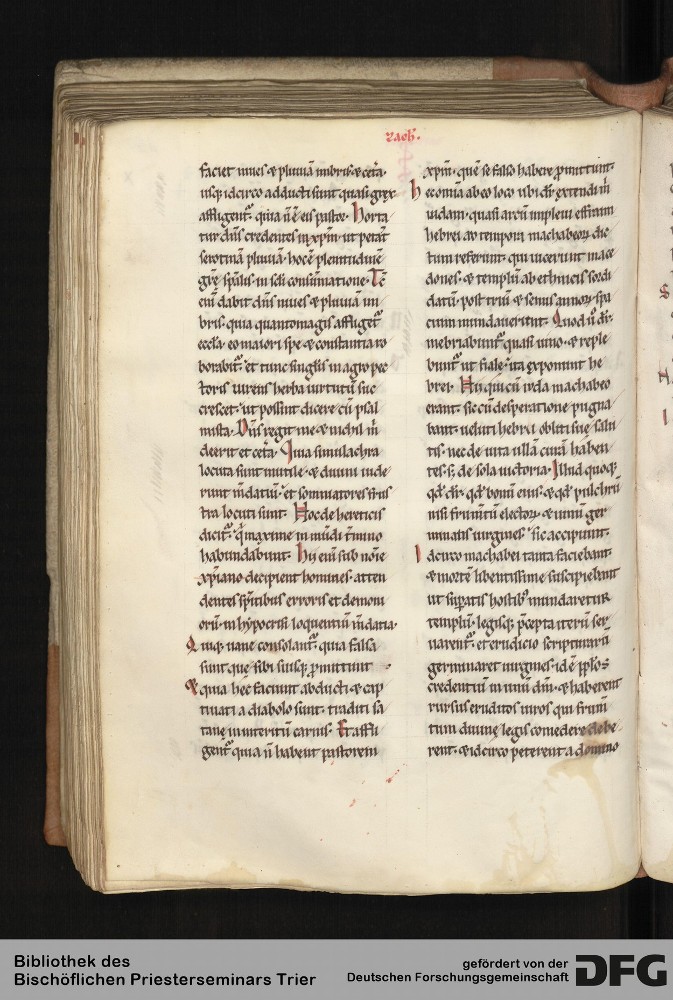 zach'.
faciet niues & pluuiā imbris· & cet̄a·
usq; idcirco adducti sunt quasi grex
affligent᷑· quia ñ ē eis pastor· Horta
tur dn̄s credentes in xp̄m· ut petāt
serotinā pluuiā· hoc ē plenitudinē
grē sp̄alis in sc̄li consūmatione· Tc̄
eni᷑ dabit dn̄s niues & pluuiā im
bris· quia quanto magis affliget᷑
eccl̄a· eo maiori spe & constantia ro
borabit᷑· et tunc singlīs in agro pec
toris uirens herba uirtutū suc
crescet· ut possint dicere cū psal
mista· Dn̄s regit me & nichil m̄
deerit et cet̄a· Quia simulachra
locuta sunt inutile· & diuini uide
runt m̄datiū· et somniatores frus
tra locuti sunt· Hoc de hereticis
dicit᷑· q̄ maxime in mūdi t̄mino
habundabunt· Hij eni᷑ sub noīe
xp̄iano decipient homines· atten
dentes sp̄itibus erroris et demoni
orū· in hypocrisi loquentiū m̄datia·
Quiq; uane consolant᷑· quia falsa
sunt que sibi suisq; promittunt·
& quia hec faciunt abducti· & cap
tiuati a diabolo sunt· traditi sa
tane in interitū carnis· Et affli
gent᷑ quia ñ habent pastorem
xp̄m· quē se falso habere promittunt·
Hec omīa ab eo loco ubi dr̄· extendi m̄
iudam· quasi arcū impleui effraim
hebrei ad tempora machabeoꝝ dic
tum referunt· qui uicerunt mace
dones· & templū ab ethnicis sordi
datū· post triū & semis annoꝝ spa
cium mundauerunt· Quod u᷑ dr̄·
inebriabunt᷑ quasi uino· & reple
bunt᷑ ut fiale· ita exponunt he
brei· Hij qui cū iuda machabeo
erant· sic cū desperatione pugna
bant· ueluti hebrii obliti suę salu
tis· nec de uita ullā curā haben
tes· s; de sola uictoria· Illud quoq;
qd̄ dr̄· qd̄ bonū eius· & qd̄ pulchrū
nisi frumtū electoꝝ· & uinū ger
minans uirgines· sic accipiunt·
Idcirco machabei tanta faciebant·
& mortē libentissime suscipiebant
ut sup̄atis hostib; mundaretur
templū· legisq; p̄cepta iterū ser
uarent᷑· et erudicio scripturarū
germinaret uirgines· id ē pplō̄s
credentiū in unū dm̄· & haberent
rursus eruditos uiros qui frum̄
tum diuinę legis comedere debe
rent· & idcirco peterent a domino
Bibliothek des
Bischöflichen Priesterseminars Trier
gefördert von der
Deutschen Forschungsgemeinschaft
DFG